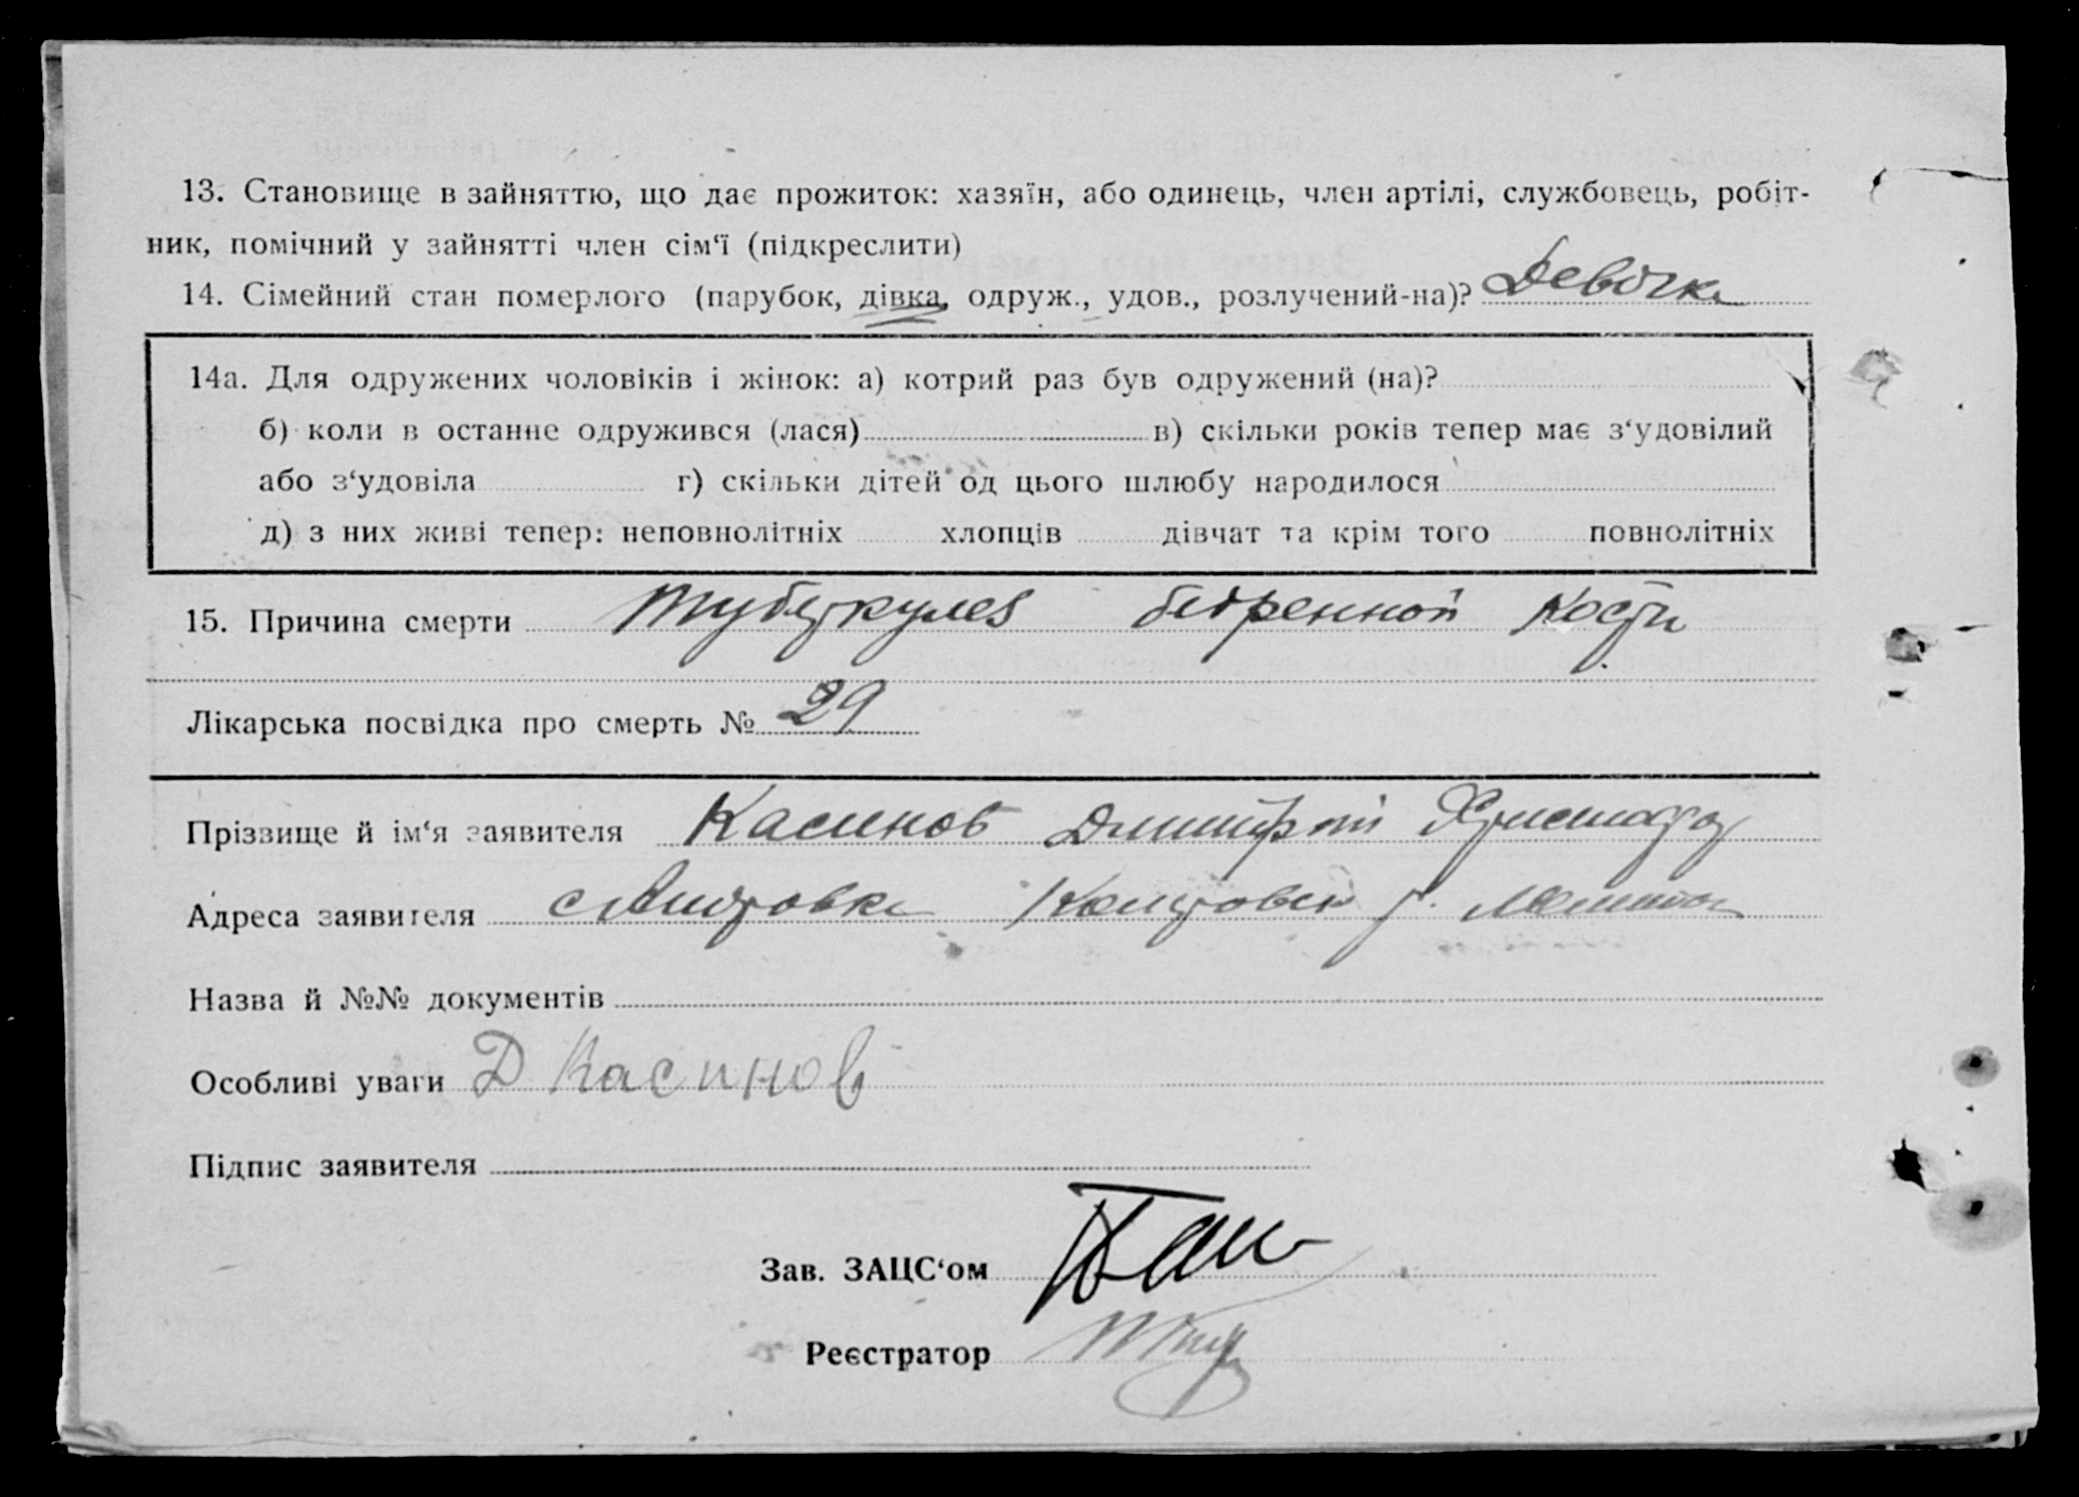 13. Становище в зайняттю, що дає прожиток: хазяїн, або одинець, член артілі, службовець, робіт-
ник, помічний у зайнятті член сім‘ї (підкреслити)
14. Сімейний стан померлого (парубок, дівка, одруж., удов., розлучений-на)? Девочка
14а. Для одружених чоловіків і жінок: а) котрий раз був одружений (на)?
б) коли в останнє одружився (лася) в) скільки років тепер має з‘удовілий
або з‘удовіла г) скільки дітей од цього шлюбу народилося
д) з них живі тепер: неповнолітніх хлопців дівчат та крім того повнолітніх
15. Причина смерти Туберкулез бедренной кости
Лікарська посвідка про смерть № 29
Прізвище й ім‘я заявителя Касинов Димитрий
Адреса заявителя с
Назва й №№ документів
Особливі уваги Д Касинов
Підпис заявителя
Зав. ЗАЦС‘ом
Реєстратор